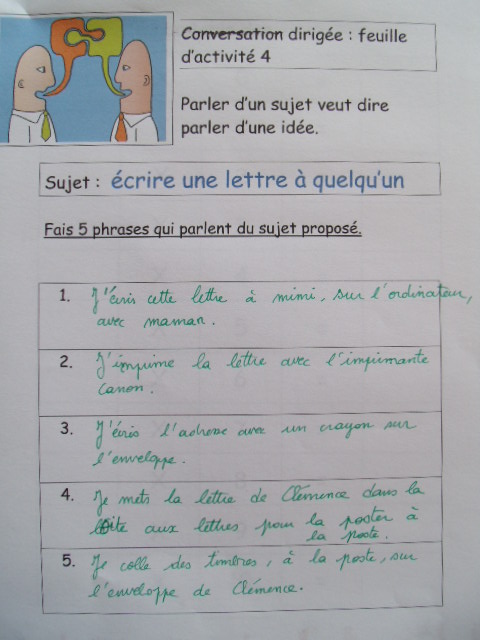 Conversation dirigée : feuille
d'activité 4
Parler d'un sujet veut dire
parler d'une idée.
Sujet : écrire une lettre à quelqu'un
Fais 5 phrases qui parlent du sujet proposé.
1. J'écris cette lettre à mimi, sur l'ordinateur,
avec maman.
2. J'imprime la lettre avec l'imprimante
canon.
3. J'écris l'adresse avec un crayon sur
l'enveloppe.
4. Je mets la lettre de Clémence dans la
boite aux lettres pour la poster à
la poste.
5. Je colle des timbres, à la poste, sur
l'enveloppe de Clémence.